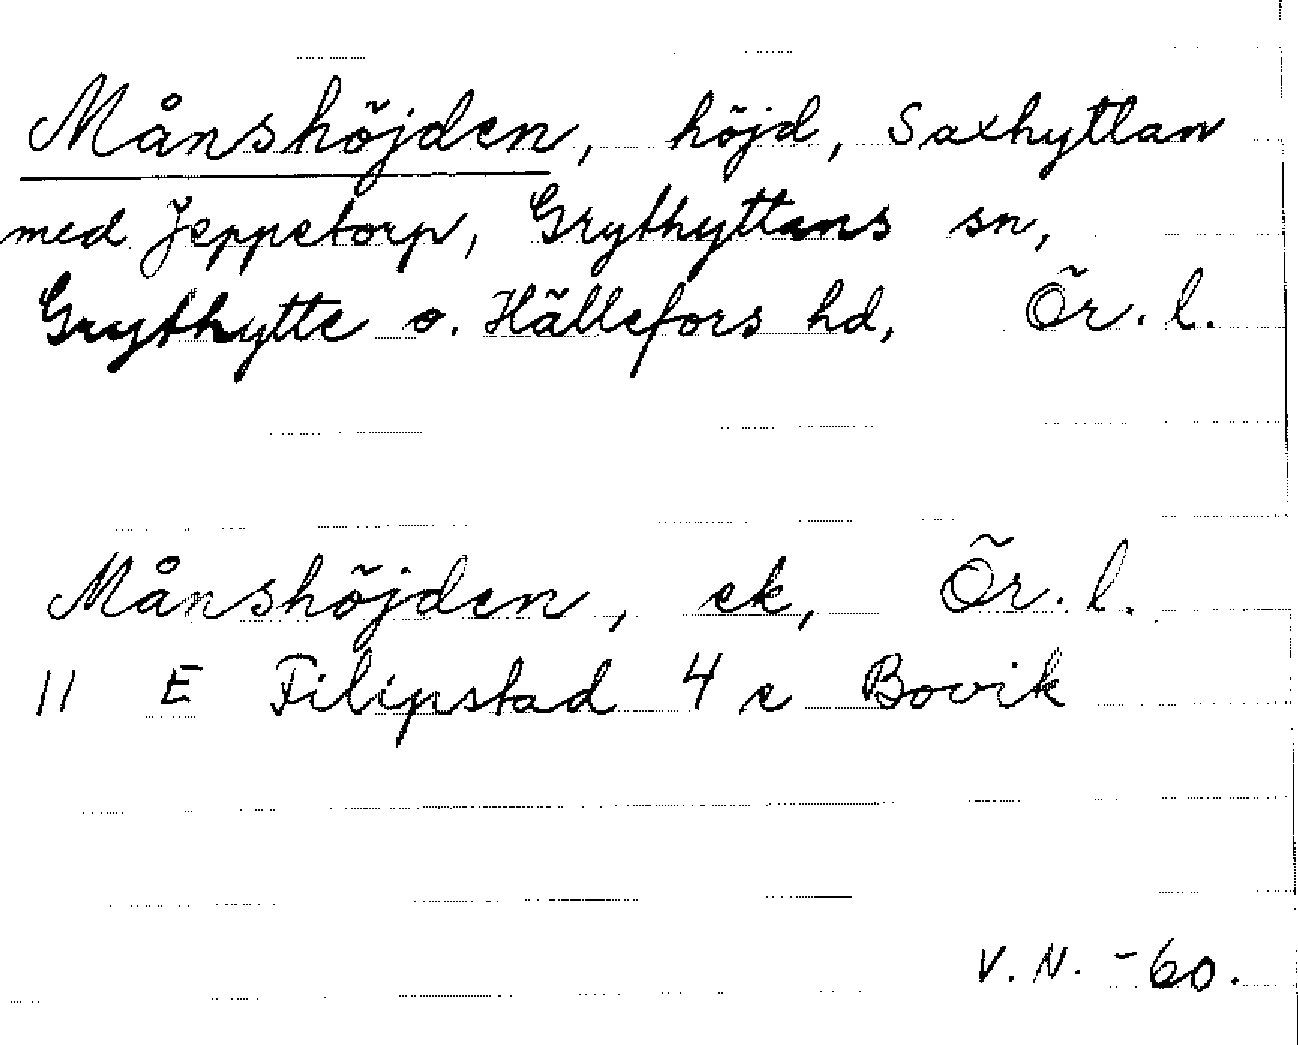 Månshöjden, höjd, Saxhyttan
med Jeppetorp, Grythyttans sn,
Grythytte o. Hällefors hd, Ör. l.
Månshöjden, ek, Ör. l.
11 E Filipstad 4 c Bovik
V. N. -60.